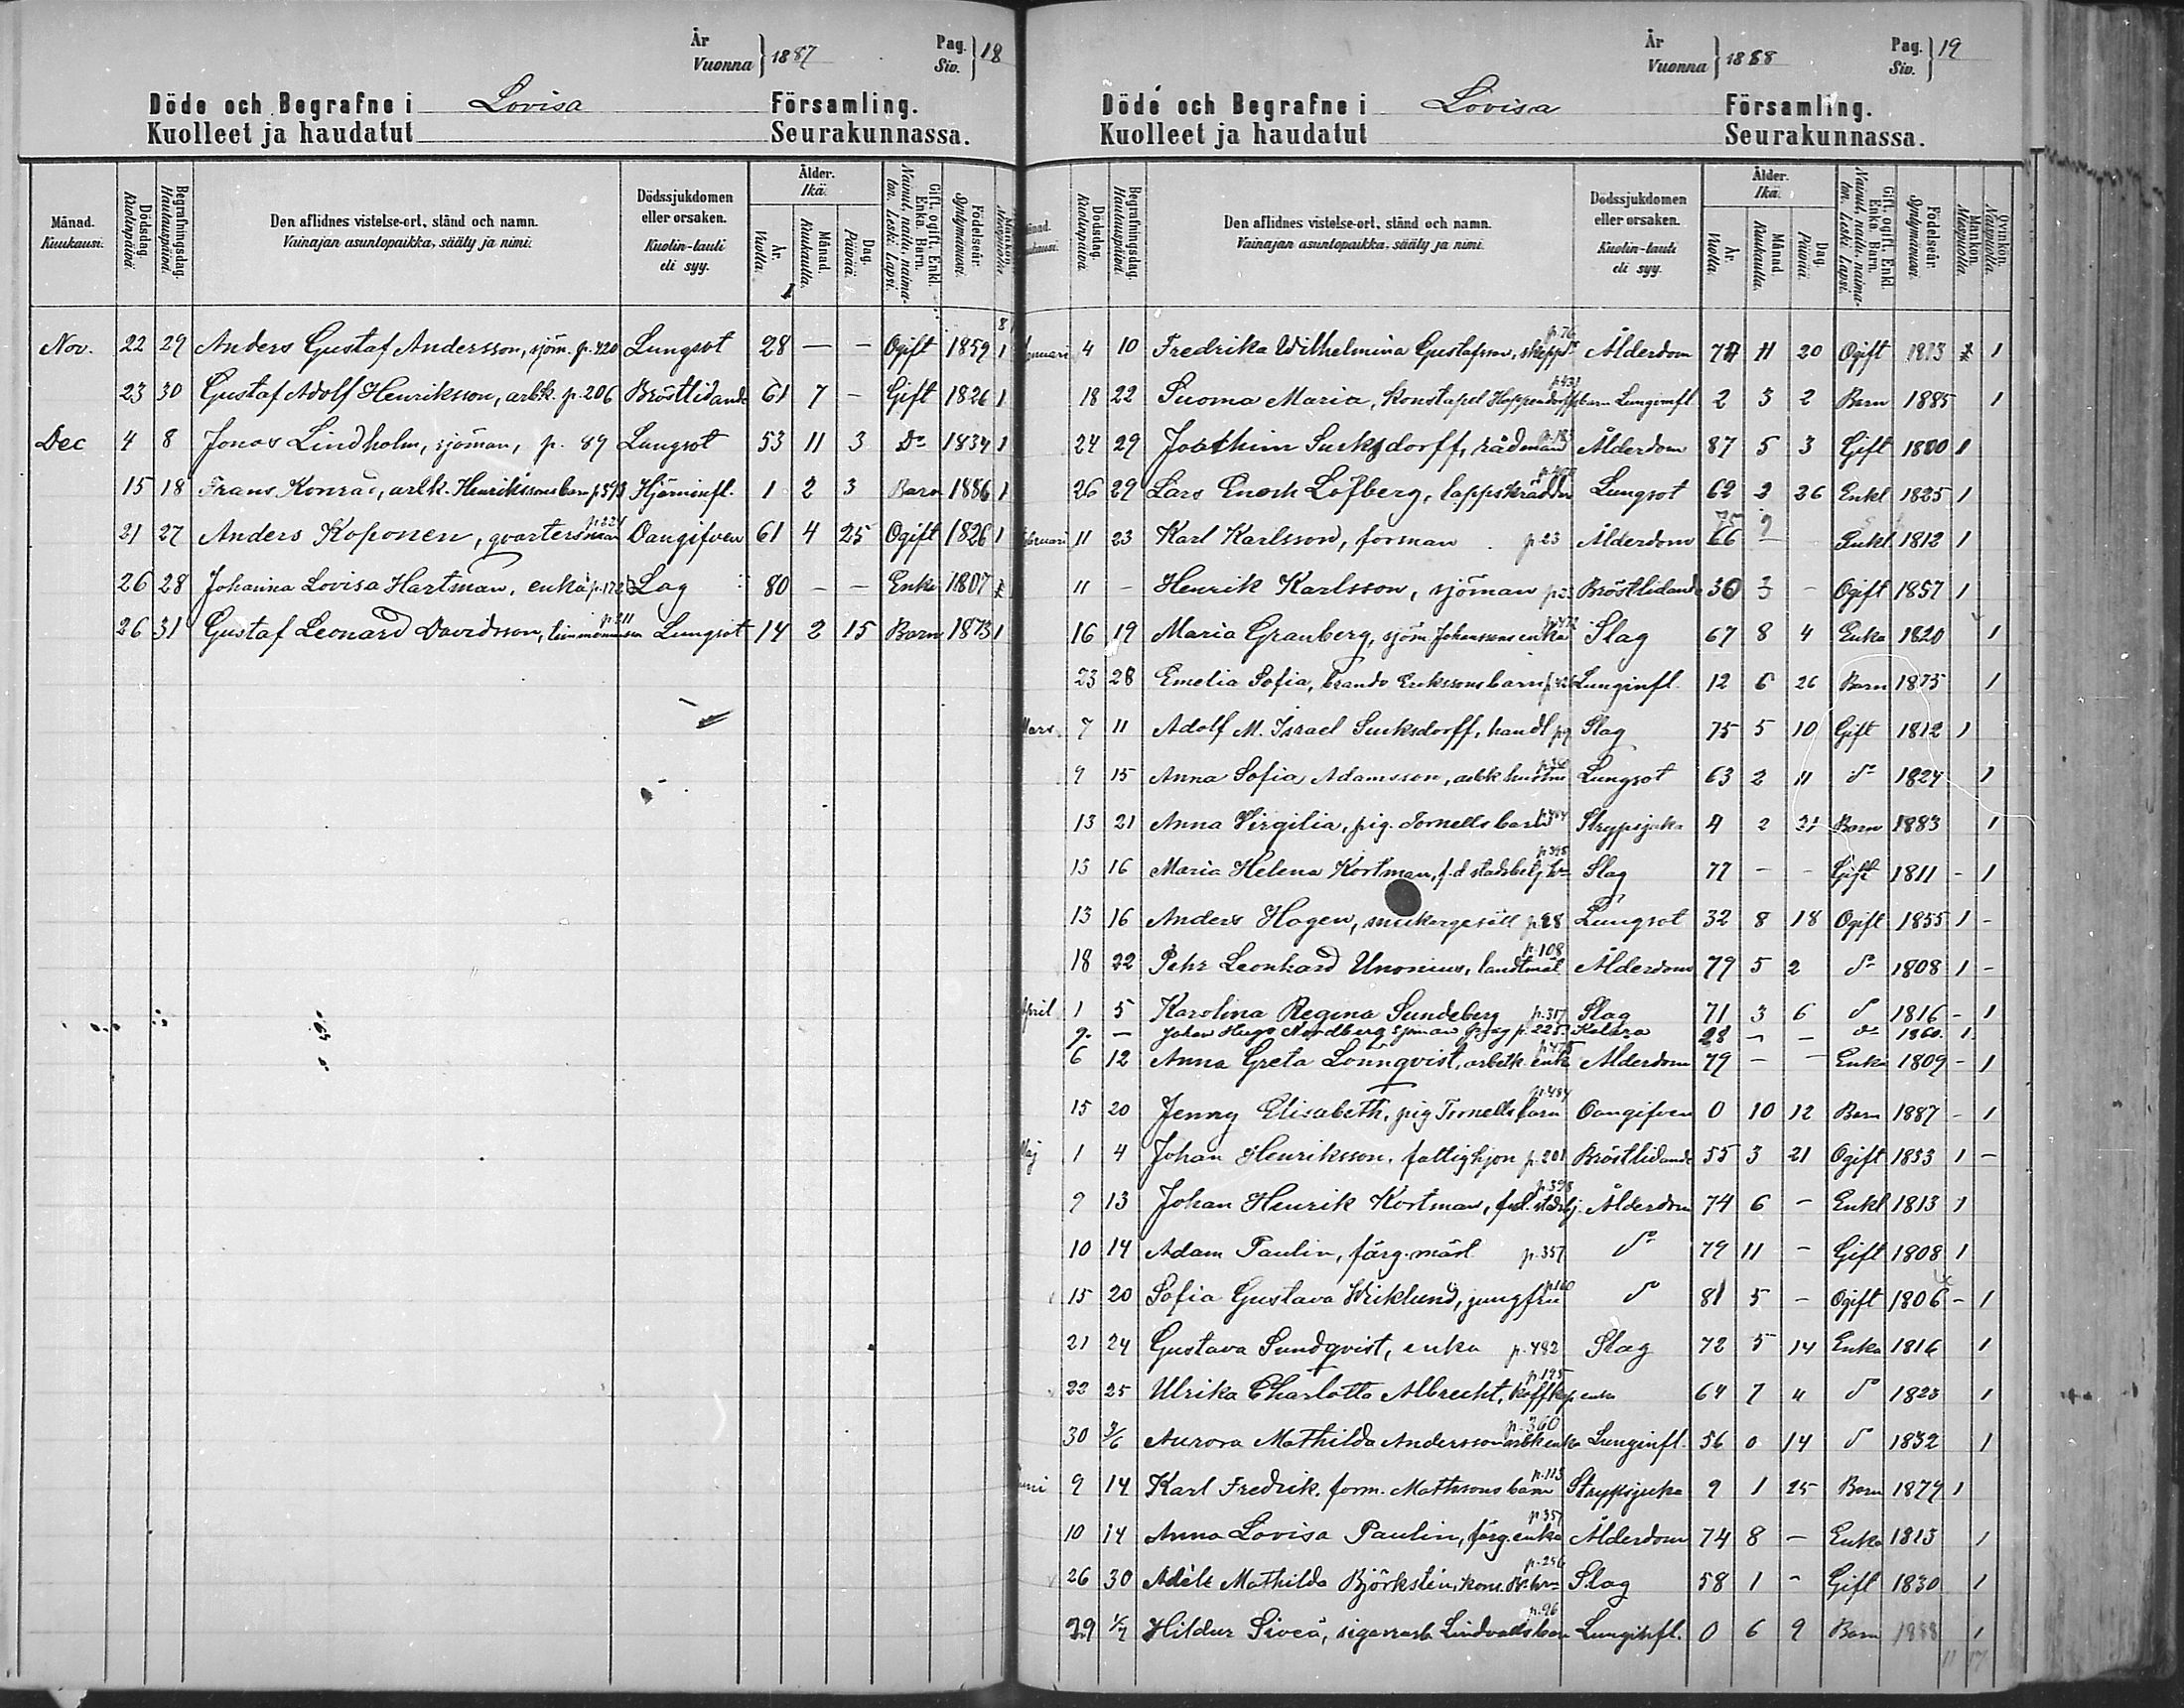 År Vuonna } 1887 Pag. Siv. } 18
Döde och Begrafne i Lovisa Församling.
Kuolleet ja haudatut Seurakunnassa.
Månad. Kuukausi. Dödsdag. Kuolinpäivä. Begrafningsdag. Hautauspäivä. Den aflidnes vistelse-ort, stånd och namn. Vainajan asuntopaikka, sääty ja nimi. Dödssjukdomen eller orsaken. Kuolin-tauti eli syy. Ålder. Ikä. År. Vuotta. Månad. Kuukautta. Dag. Päivää. Gift, ogift, Enkl. Enka. Barn. Nainut, naitu, naima-ton. Leski. Lapsi. Födelseår. Syntymävuosi. Mankön. Miespuolia.
Nov. 22 29 Anders Gustaf Andersson, sjöm. p. 420 Lungsot 28 — — Ogift 1859 1
23 30 Gustaf Adolf Henriksson, arbk. p. 206 Bröstlidande 61 7 — Gift 1826 1
Dec 4 8 Jonas Lindholm, sjöman, p. 89 Lungsot 53 11 3 Do 1834 1
15 18 Frans Konrad, arbk. Henrikssons barn p. 393 Hjärninfl. 1 2 3 Barn 1886 1
21 27 Anders Koponen, qvartersman p. 221 Oangifven 61 4 25 Ogift 1826 1
26 28 Johanna Lovisa Hartman, enka p. 172 Slag 80 — — Enka 1807
26 31 Gustaf Leonard Davidsson, p. 211 Lungsot 14 2 15 Barn 1873 1
År Vuonna } 1888 Pag. Siv. } 19
Döde och Begrafne i Lovisa Församling.
Kuolleet ja haudatut Seurakunnassa.
Dödsdag. Kuolinpäivä. Begrafningsdag. Hautauspäivä. Den aflidnes vistelse-ort, stånd och namn. Vainajan asuntopaikka, sääty ja nimi. Dödssjukdomen eller orsaken. Kuolin-tauti eli syy. Ålder. Ikä. År. Vuotta. Månad. Kuukautta. Dag. Päivää. Gift, ogift, Enkl. Enka. Barn. Nainut, naitu, naima-ton. Leski. Lapsi. Födelseår. Syntymävuosi. Mankön. Miespuolia. Qvinkön. Naispuolia.
Januari 4 10 Fredrika Wilhelmina Gustafsson, p. 76 Ålderdom 74 11 20 Ogift 1813 1
18 22 Suoma Maria, Konstapel Hoppendorffs barn Lunginfl 2 3 2 Barn 1885 1
24 29 Joachim Sucksdorff, rådman Ålderdom 87 5 3 Gift 1800 1
26 29 Lars Enoch Löfberg, lappskräddr Lungsot 62 2 26 Enkl 1825 1
Februari 11 23 Karl Karlsson, forman p. 23 Ålderdom 66 75 Enkl 1812 1
11 — Henrik Karlsson, sjöman p. 23 Bröstlidande 30 3 — Ogift 1857 1
16 19 Maria Granberg, sjöm. Johanssons enka p. 472 Slag 67 8 4 Enka 1820 1
23 28 Emelia Sofia, brandv Erikssons barn Lunginfl. 12 6 26 Barn 1875 1
Mars 7 11 Adolf M. Israel Sucksdorff, handl p. 9 Slag 75 5 10 Gift 1812 1
9 15 Anna Sofia Adamsson, arbk hustru Lungsot 63 2 11 do 1824 1
13 21 Anna Virgilia, pig. Tornells barn Strypsjuka 4 2 21 Barn 1883 1
13 16 Maria Helena Kortman, f.d. stadsbetj. p. 398 Slag 77 — — Gift 1811 — 1
13 16 Anders Hagen, snickaregesäll p. 28 Lungsot 32 8 18 Ogift 1855 1 —
18 22 Pehr Leonhard Unonius, landtmät p. 108 Ålderdom 79 5 2 do 1808 1 —
April 1 5 Karolina Regina Sundeberg p. 317 Slag 71 3 6 do 1816 — 1
9. — Johan Hugo Nordberg sjöman p. 225 Kolera 28 — — do 1860. 1
6 12 Anna Greta Lönnqvist, arbetk. enka p. 475 Ålderdom 79 — — Enka 1809 — 1
15 20 Jenny Elisabeth, pig Tornells barn p. 484 Oangifven 0 10 12 Barn 1887 — 1
Maj 1 4 Johan Henriksson, fattighjon p. 201 Bröstlidande 55 3 21 Ogift 1833 1 —
9 13 Johan Henrik Kortman, f.d. stadsbj. p. 398 Ålderdom 74 6 — Enkl 1813 1
10 14 Adam Paulin, färg. mäst p. 357 do 79 11 — Gift 1808 1
15 20 Sofia Gustava Wicklund, jungfru p. 160 do 81 5 — Ogift 1806 — 1
21 24 Gustava Sundqvist, enka p. 482 Slag 72 5 14 Enka 1816 1
22 25 Ulrika Charlotta Albrecht, koffkap enka p. 195 64 7 4 do 1823 1
30 3/6 Aurora Mathilda Andersson arbk enka p. 360 Lunginfl. 56 0 14 do 1832 1
Juni 9 14 Karl Fredrik, form. Mathsons barn p. 113 Strypsjuka 9 1 25 Barn 1879 1
10 14 Anna Lovisa Paulin, färg. enka p. 357 Ålderdom 74 8 — Enka 1813 1
26 30 Adèle Mathilda Björkstén, p. 256 Slag 58 1 — Gift 1830 1
29 1/7 Hildur Sivea, sigarrarb. Lindvalls barn p. 96 Lunginfl. 0 6 9 Barn 1888 1
11 17